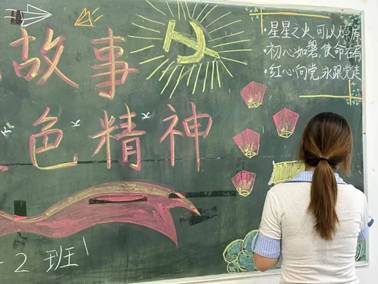 故事
色精神
-2班
·星星之火,可以燎原
·初心如磐,使命在肩
·红心向党,永跟党走